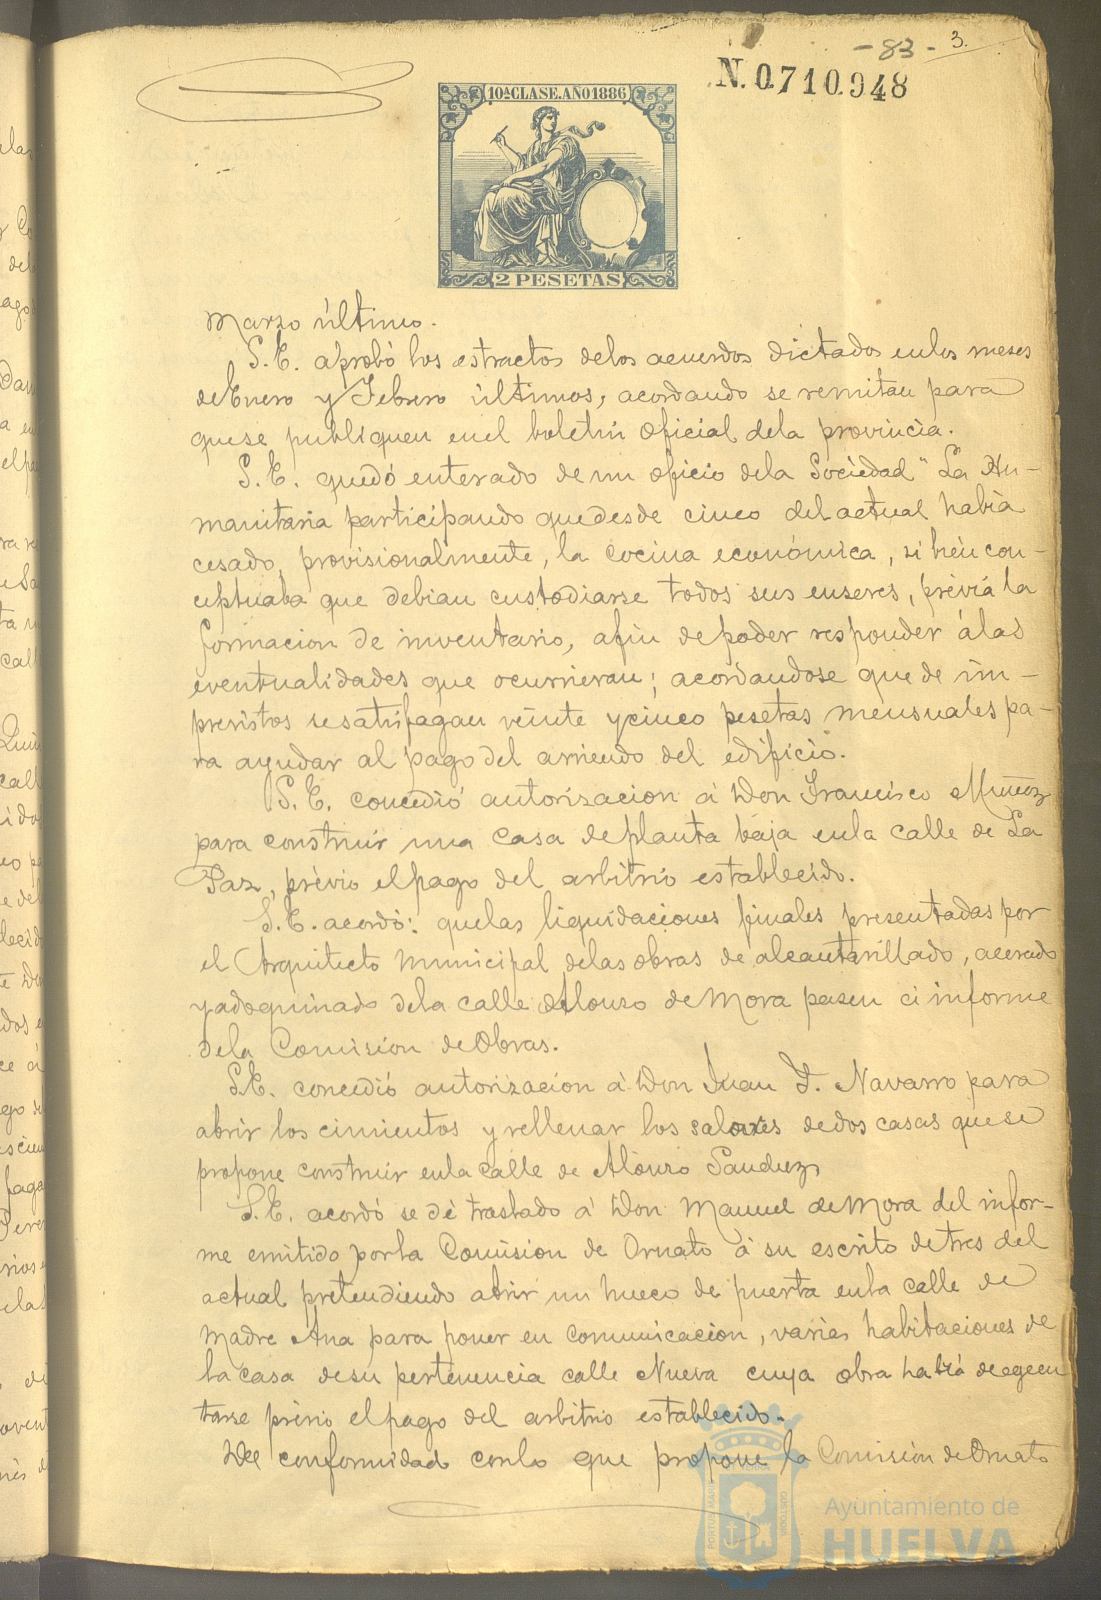 - 83 - 3.
N. 0.710.948
10ª CLASE. AÑO 1886
2 PESETAS
Marzo último.
S.E. aprobó los estractos delos acuerdos dictados enlos meses
deEnero y Febrero últimos, acordando se remitan para
quese publiquen enel boletín oficial dela provincia.
S.E. quedó enterado de un oficio dela Sociedad "La Hu-
manitaria participando quedesde cinco del actual había
cesado, provisionalmente, la cocina económica, si bien con-
ceptuaba que debian custodiarse todos sus enseres, prévia la
formacion de inventario, afin depoder responder álas
eventualidades que ocurrieran; acordandose que de im-
previstos se satisfagan veinte ycinco pesetas mensuales pa-
ra ayudar al pago del arriendo del edificio.
S.E. concedió autorizacion á Don Francisco Muñoz
para construir una casa deplanta baja enla calle de La
Paz, prévio elpago del arbitrio establecido.
S.E. acordó: quelas liquidaciones finales presentadas por
el Arquitecto Municipal delas obras de alcantarillado, acerado
yadoquinado dela calle Alonso de Mora pasen á informe
dela Comisión deObras.
S.E. concedió autorizacion á Don Juan F. Navarro para
abrir los cimientos y rellenar los salones dedos casas quese
propone construir enla calle de Alonso Sanchez
S.E. acordó se dé traslado á Don Manuel deMora del infor-
me emitido porla Comision de Ornato á su escrito detres del
actual pretendiendo abrir un hueco de puerta enla calle de
Madre Ana para poner en comunicacion, varias habitaciones de
la casa desu pertenencia calle Nueva cuya obra habrá deegecu
tarse prévio elpago del arbitrio establecido.
De conformidad conlo que propone la Comisión deOrnato
Ayuntamiento de
HUELVA